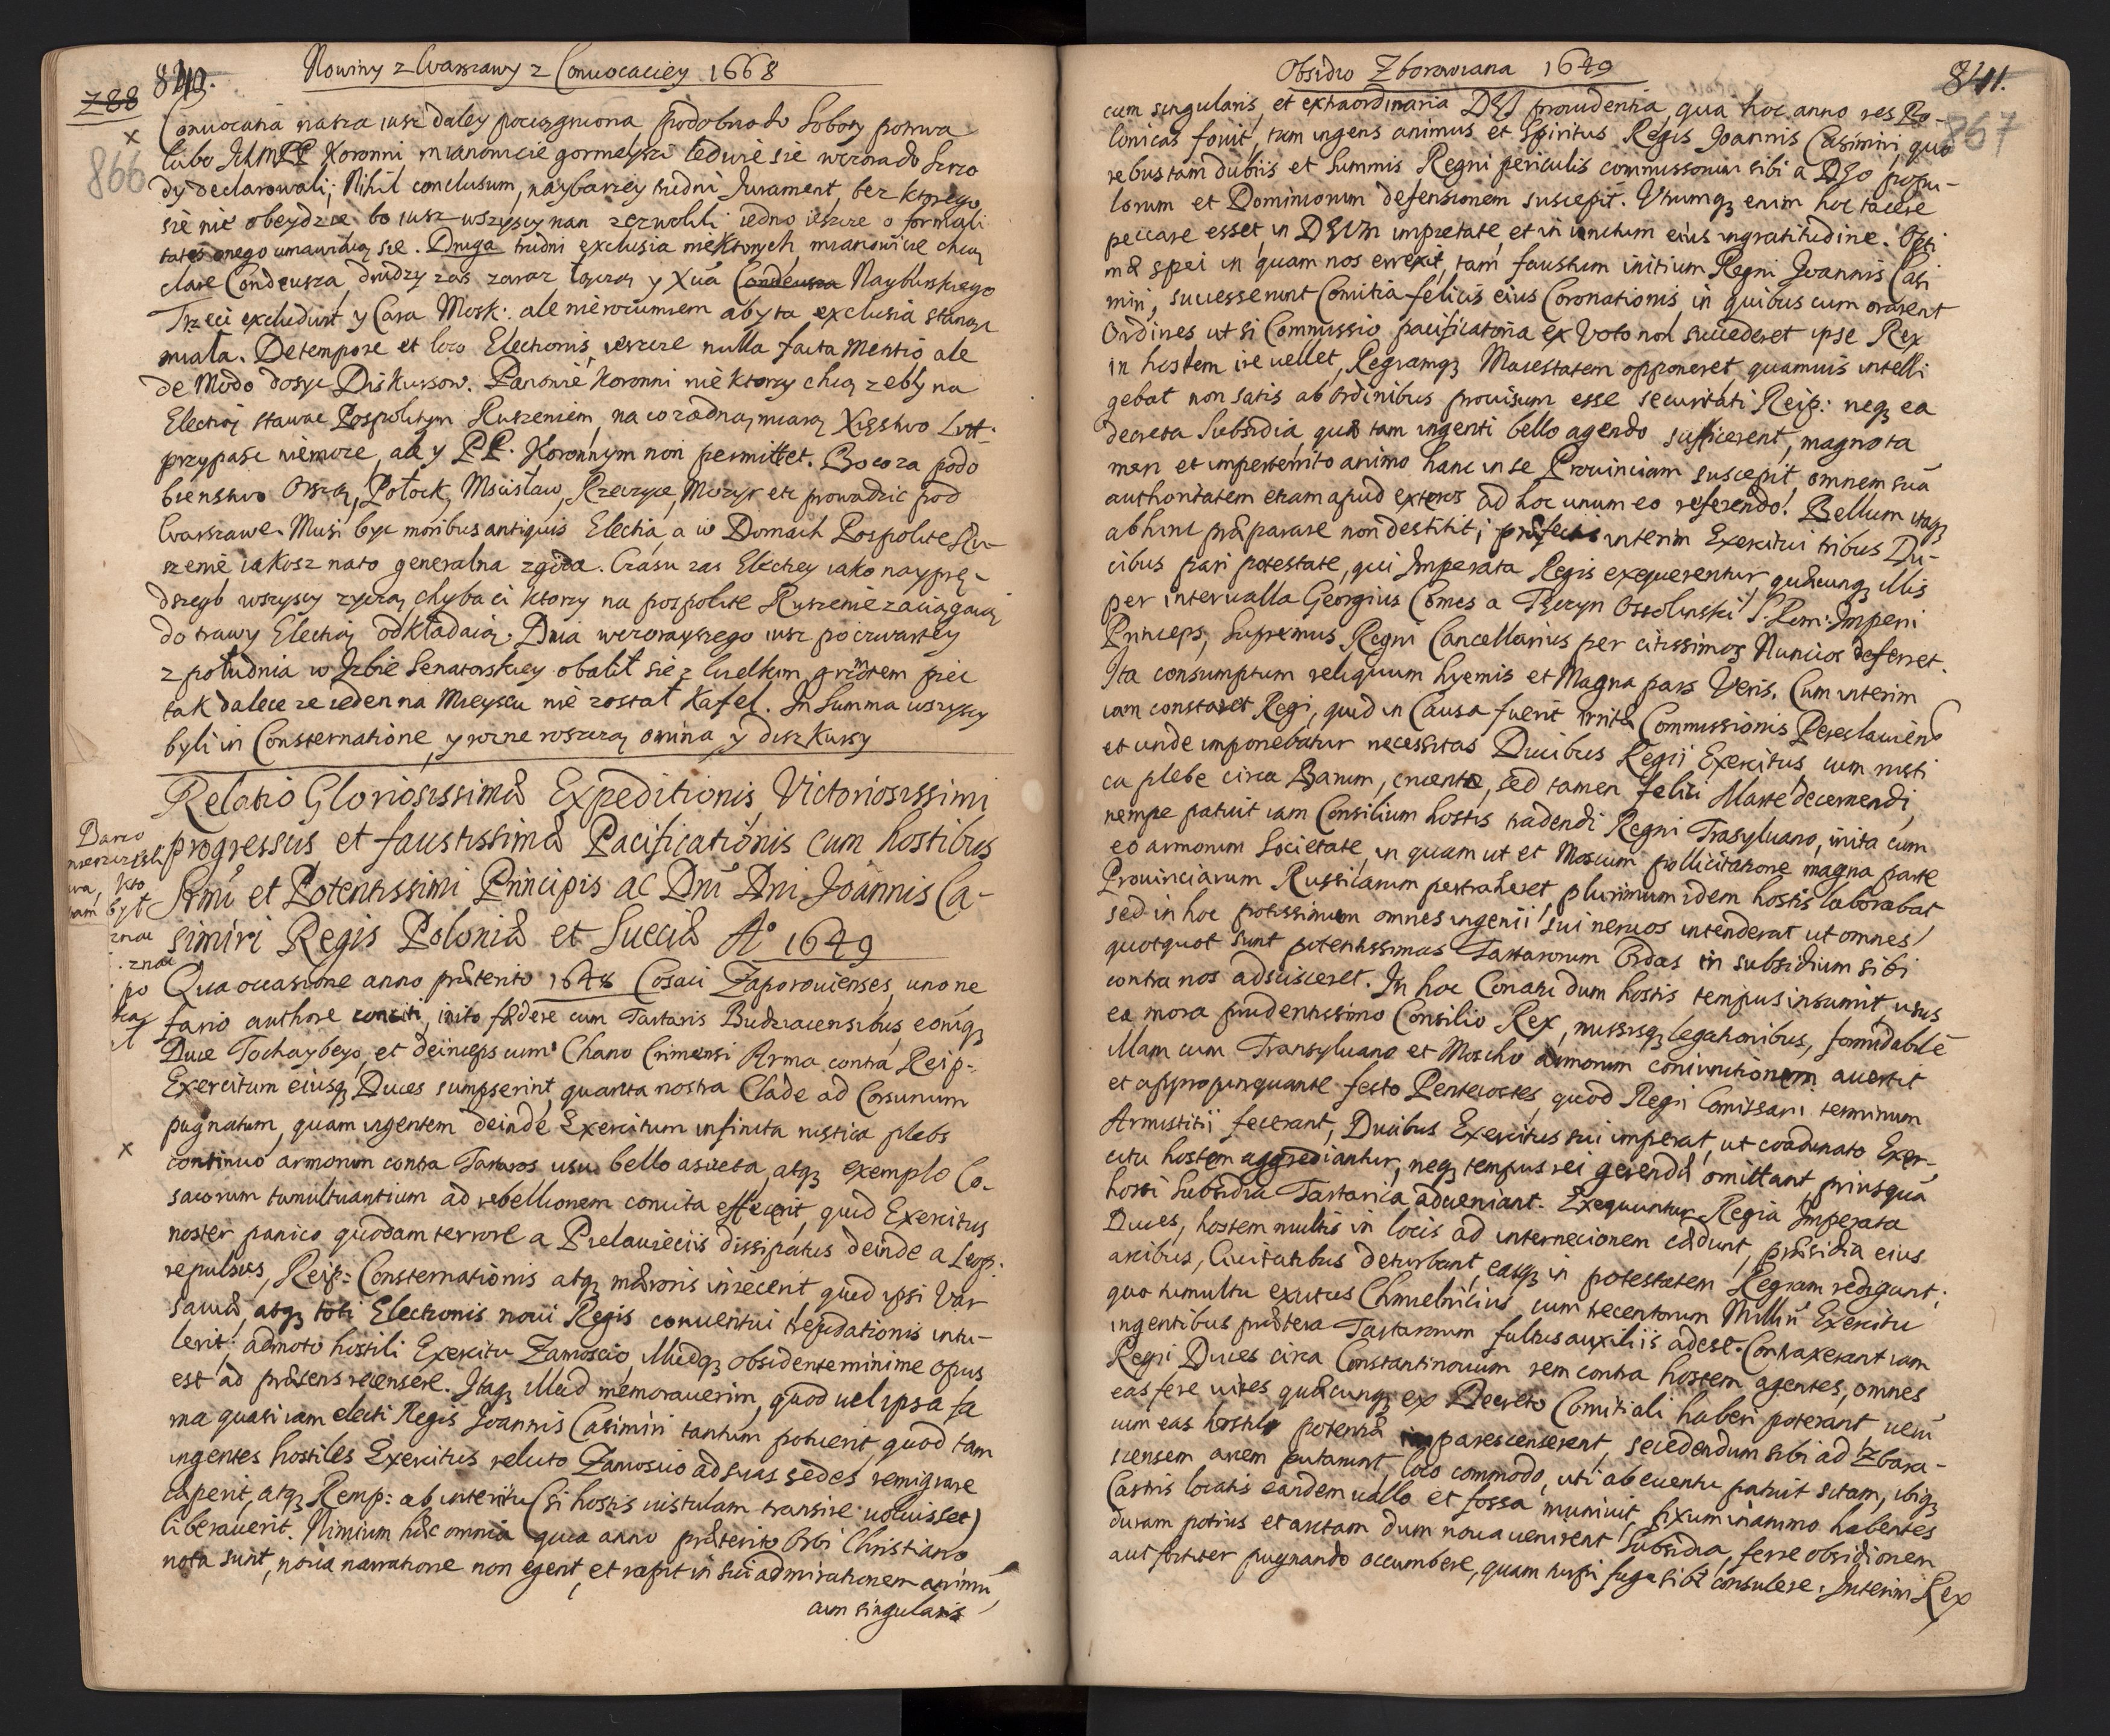 788 840.
Nowiny z Warszawy z Conuocaciey 1668
x
866
Conuocatia nasza iusz daley pociągniona, podobno do Soboty potrwa
lubo IchMPP Koronni mianowicie gornieyszi ledwie sie wczora do Szro
dy declarowali; Nihil conclusum, naybarziey trudni Jurament, bez ktorego
sie nie obeydzie bo iusz wszyscy nan zezwolili iedno ieszcze o formali
tates onego umawiaią sie. Druga trudni exclusia niektorych, mianowicie chcą
clare Condeusza, drudzy zas zaraz łączą y Xcia Condeusza Nayburskiego
Trzeci excludunt y Cara Mosk: ale nierozumiem aby ta exclusia stanąc
miała. De tempore et loco Electionis, ieszcze nulla facta Mentio ale
de Modo dosyc Diskursow. Panowie Koronni niektorzy chcą zeby na
Electią stawac Pospolitym Ruszeniem, na co zadną miarą Xięstwo Litt:
przypasc niemoze, ale y PP. Koronnym non permittet. Bo co za podo
bienstwo Orszą, Połock, Mscisław, Rzeczyce, Mozyr etc prowadzic pod
Warszawe. Musi byc moribus antiquis Electia, a w Domach Pospolite Ru-
szenie iakosz na to generalna zgoda. Czasu zas Electiey iako nayprę-
dszego wszyscy zyczą, chyba ci ktorzy na pospolite Ruszenie zaciągaią
do trawy Electią odkładaią. Dnia wczorayszego iusz po czwartey
z południa w Izbie Senatorskiey obalił sie z wielkim grzmotem piec
tak dalece ze ieden na Mieyscu nie został Kafel. In Summa wszyscy
byli in Consternatione, y rozne roszczą omina y diszkursy
Relatio Gloriosissimæ Expeditionis, Victoriosissimi
progressus et faustissimæ Pacificationis cum hostibus
Srmi et Potentissimi Principis ac Dni Dni Joannis Ca-
simiri Regis Poloniæ et Sueciæ Ao 1649
Qua occasione anno præterito 1648 Cosaci Zaporouienses, uno ne
fario authore conciti, inito fædere cum Tartaris Budziacensibus, eorũq
Duce Tochaybeyo, et deinceps cum Chano Crimensi Arma contra Reip:
Exercitum eiusq Duces sumpserint, quanta nostra Clade ad Corsunum
pugnatum, quam ingentem deinde Exercitum infinita rustica plebs
x
continuo armorum contra Tartaros usu bello asueta, atq exemplo Co-
sacorum tumultuantium ad rebellionem concita effecerit, quid Exercitus
noster panico quodam terrore a Pielauieciis dissipatus deinde a Leop:
repulsus, Reip: Consternationis atq mæroris iniecerit quid ipsi Var
sauiæ, atq toti Electionis noui Regis conuentui trepidationis intu-
lerit: admoto hostili Exercitu Zamoscio, illudq obsidente minime opus
est ad præsens recensere. Itaq illud memorauerim, quod uel ipsa fa
ma quasi iam electi Regis Joannis Casimiri tantum potuerit, quod tam
ingentes hostiles Exercitus relicto Zamoscio ad suas sedes remigrare
cæperit, atq Remp: ab interitu (si hostis uistulam transire uoluisset)
liberauerit. Nimium hæc omnia quia anno præterito Orbi Christiano
nota sunt, noua narratione non egent, et rapit in sui admirationem animũ,
cum singularis
Obsidio Zborowiana 1649
841.
867
cum singularis, et extraordinaria DEI prouidentia, qua hoc anno res Po-
lonicas fouit, tum ingens animus et Spiritus Regis Joannis Casimiri, quo
rebus tam dubiis et summis Regni periculis commissorum sibi a DEo popu-
lorum et Dominiorum defensionem suscepit. Utrumq enim hoc tacere
peccare esset, in DEUM impietate, et in unctum eius ingratitudine. Opti
mæ spei in quam nos erexit, tam faustum initium Regni Joannis Casi
miri, successerunt Comitia felicis eius Coronationis, in quibus cum orarent
Ordines ut si Commissio pacificatoria ex Voto non succederet ipse Rex
in hostem ire uellet, Regiamq Maiestatem opponeret, quamuis intelli
gebat non satis ab Ordinibus prouisum esse securitati Reip: neq ea
decreta Subsidia, quæ tam ingenti bello agendo sufficerent, magno ta
men et imperterrito animo hanc in se Prouinciam suscepit, omnem suã
authoritatem etiam apud exteros ad hoc unum eo referendo. Bellum itaq
abhinc præparare non destitit; præfectis interim Exercitui tribus Du-
cibus pari potestate, qui Imperata Regis exequerentur, quæcunq illis
per interualla Georgius Comes a Tęczyn Ossolinski S: Rom: Imperii
Princeps, Supremus Regni Cancellarius per citissimos Nuncios deferret.
Ita consumptum reliquum hyemis et Magna pars Veris. Cum interim
iam constaret Regi, quid in Causa fuerit irritæ Commissionis Pereslauiens
et unde imponebatur necessitas Ducibus Regii Exercitus cum rusti
ca plebe circa Barum, cruento, sed tamen felici Marte decernendi,
nempe patuit iam Consilium hostis tradendi Regni Trasyluano, inita cum
eo armorum Societate, in quam ut et Moscum pollicitatione magna parte
Prouinciarum Russicarum pertraheret, plurimum idem hostis laborabat
sed in hoc potissimum omnes ingenii sui neruos intenderat ut omnes
quotquot sunt potentissimas Tartarorum Ordas in subsidium sibi
contra nos adscisceret. In hoc Conatu dum hostis tempus insumit, usus
ea mora prudentissimo Consilio Rex, missisq legationibus, formidabilẽ
illam cum Transyluano et Moscho armorum coniunctionem auertit
et appropinquante festo Pentecostes, quod Regii Comissarii terminum
Armistitii fecerant, Ducibus Exercitus sui imperat, ut coadunato Exer-
citu hostem aggrediantur, neq tempus rei gerendæ omittant priusquã
hosti Subsidia Tartarica adueniant. Exequuntur Regia Imperata
Duces, hostem multis in locis ad internecionem cædunt, præsidia eius
arcibus, Ciuitatibus deturbant, easq in potestatem Regiam redigunt;
quo tumultu excitus Chmielnicius, cum trecentorum Milliũ Exercitu
ingentibus præterea Tartarorum fultus auxiliis adest. Contraxerant iam
Regii Duces circa Constantinouum rem contra hostem agentes, omnes
eas fere uires quæcunq ex Decreto Comitiali haberi poterant uerũ
cum eas hostili potentiæ impares censerent, secedendum sibi ad Zbara-
siensem arcem putarunt, loco commodo, uti ab euentu patuit sitam, ibiq
Castris locatis eandem uallo et fossa muniuit, fixum in animo habentes
duram potius et arctam dum noua uenirent Subsidia, ferre obsidionem
aut fortiter pugnando occumbere, quam turpi fuga sibi consulere. Interim Rex